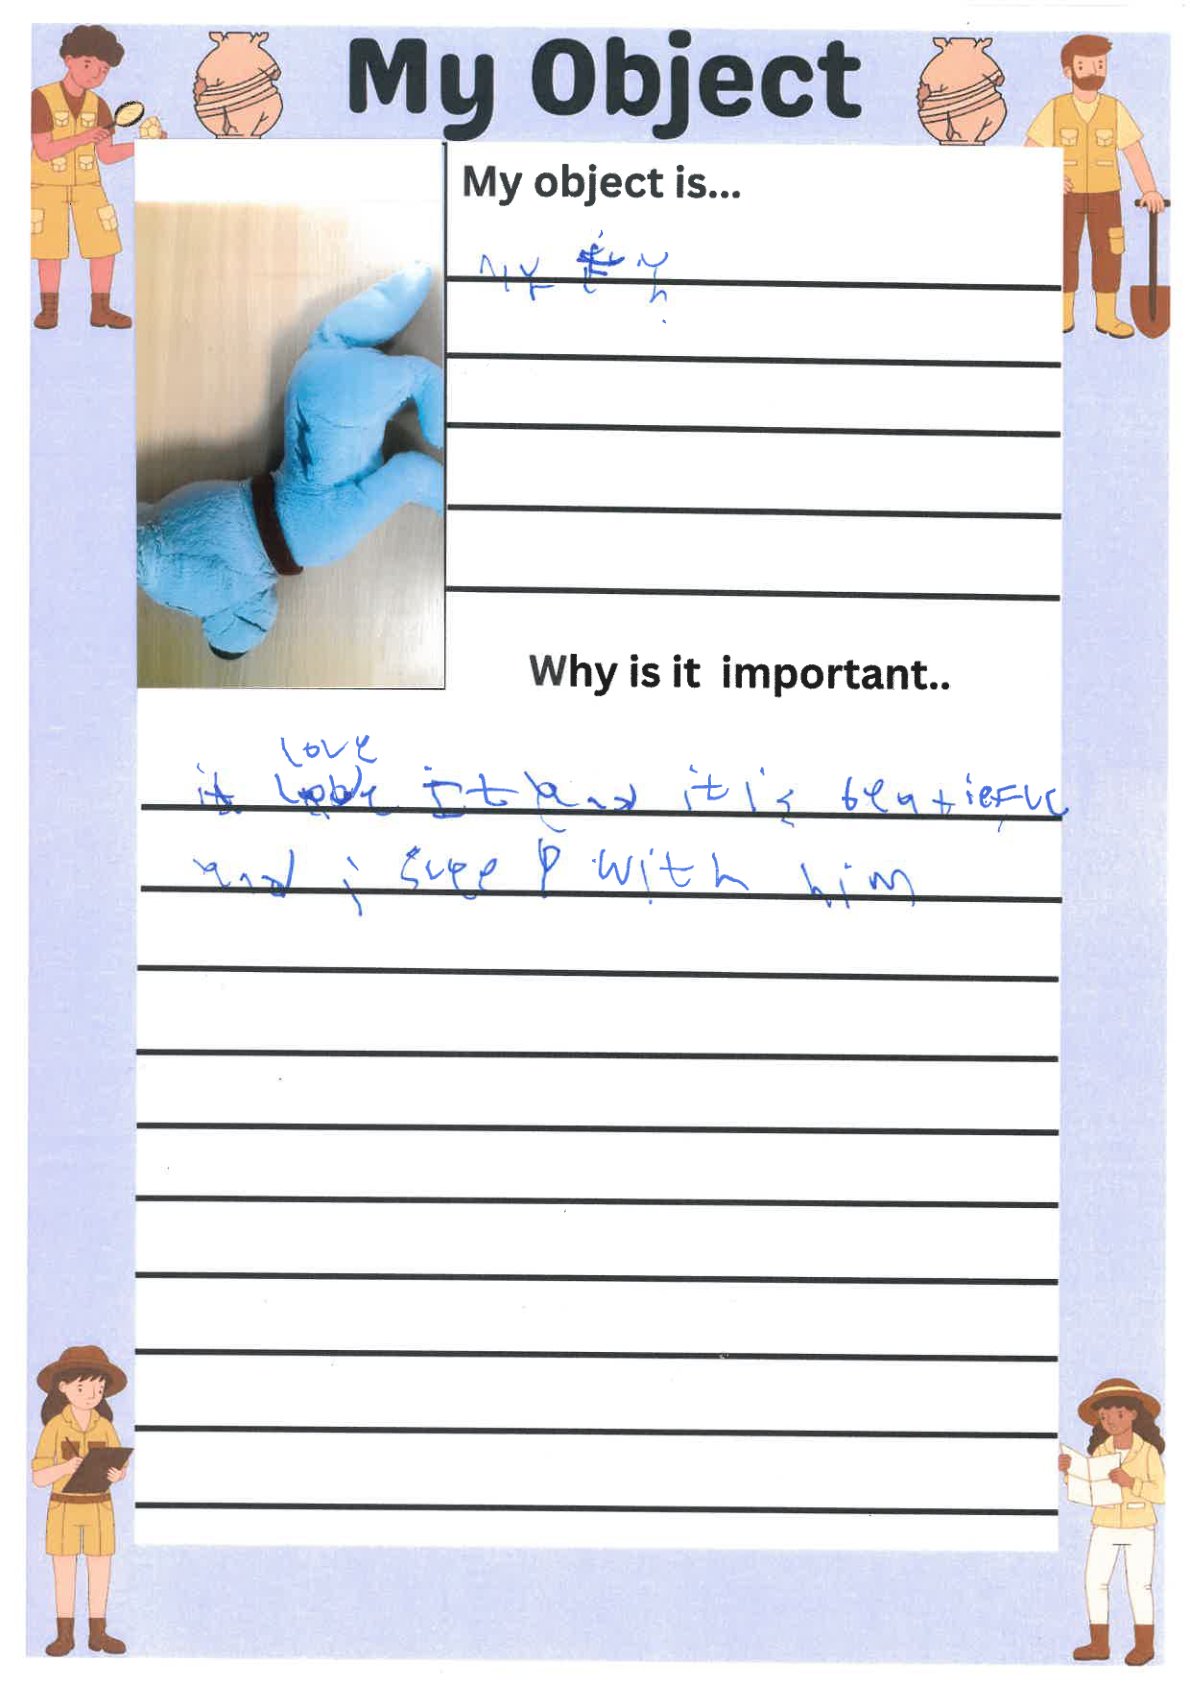 My Object
My object is...
My
Why is it important..
love
it it and it is beatieful
and i sleep with him